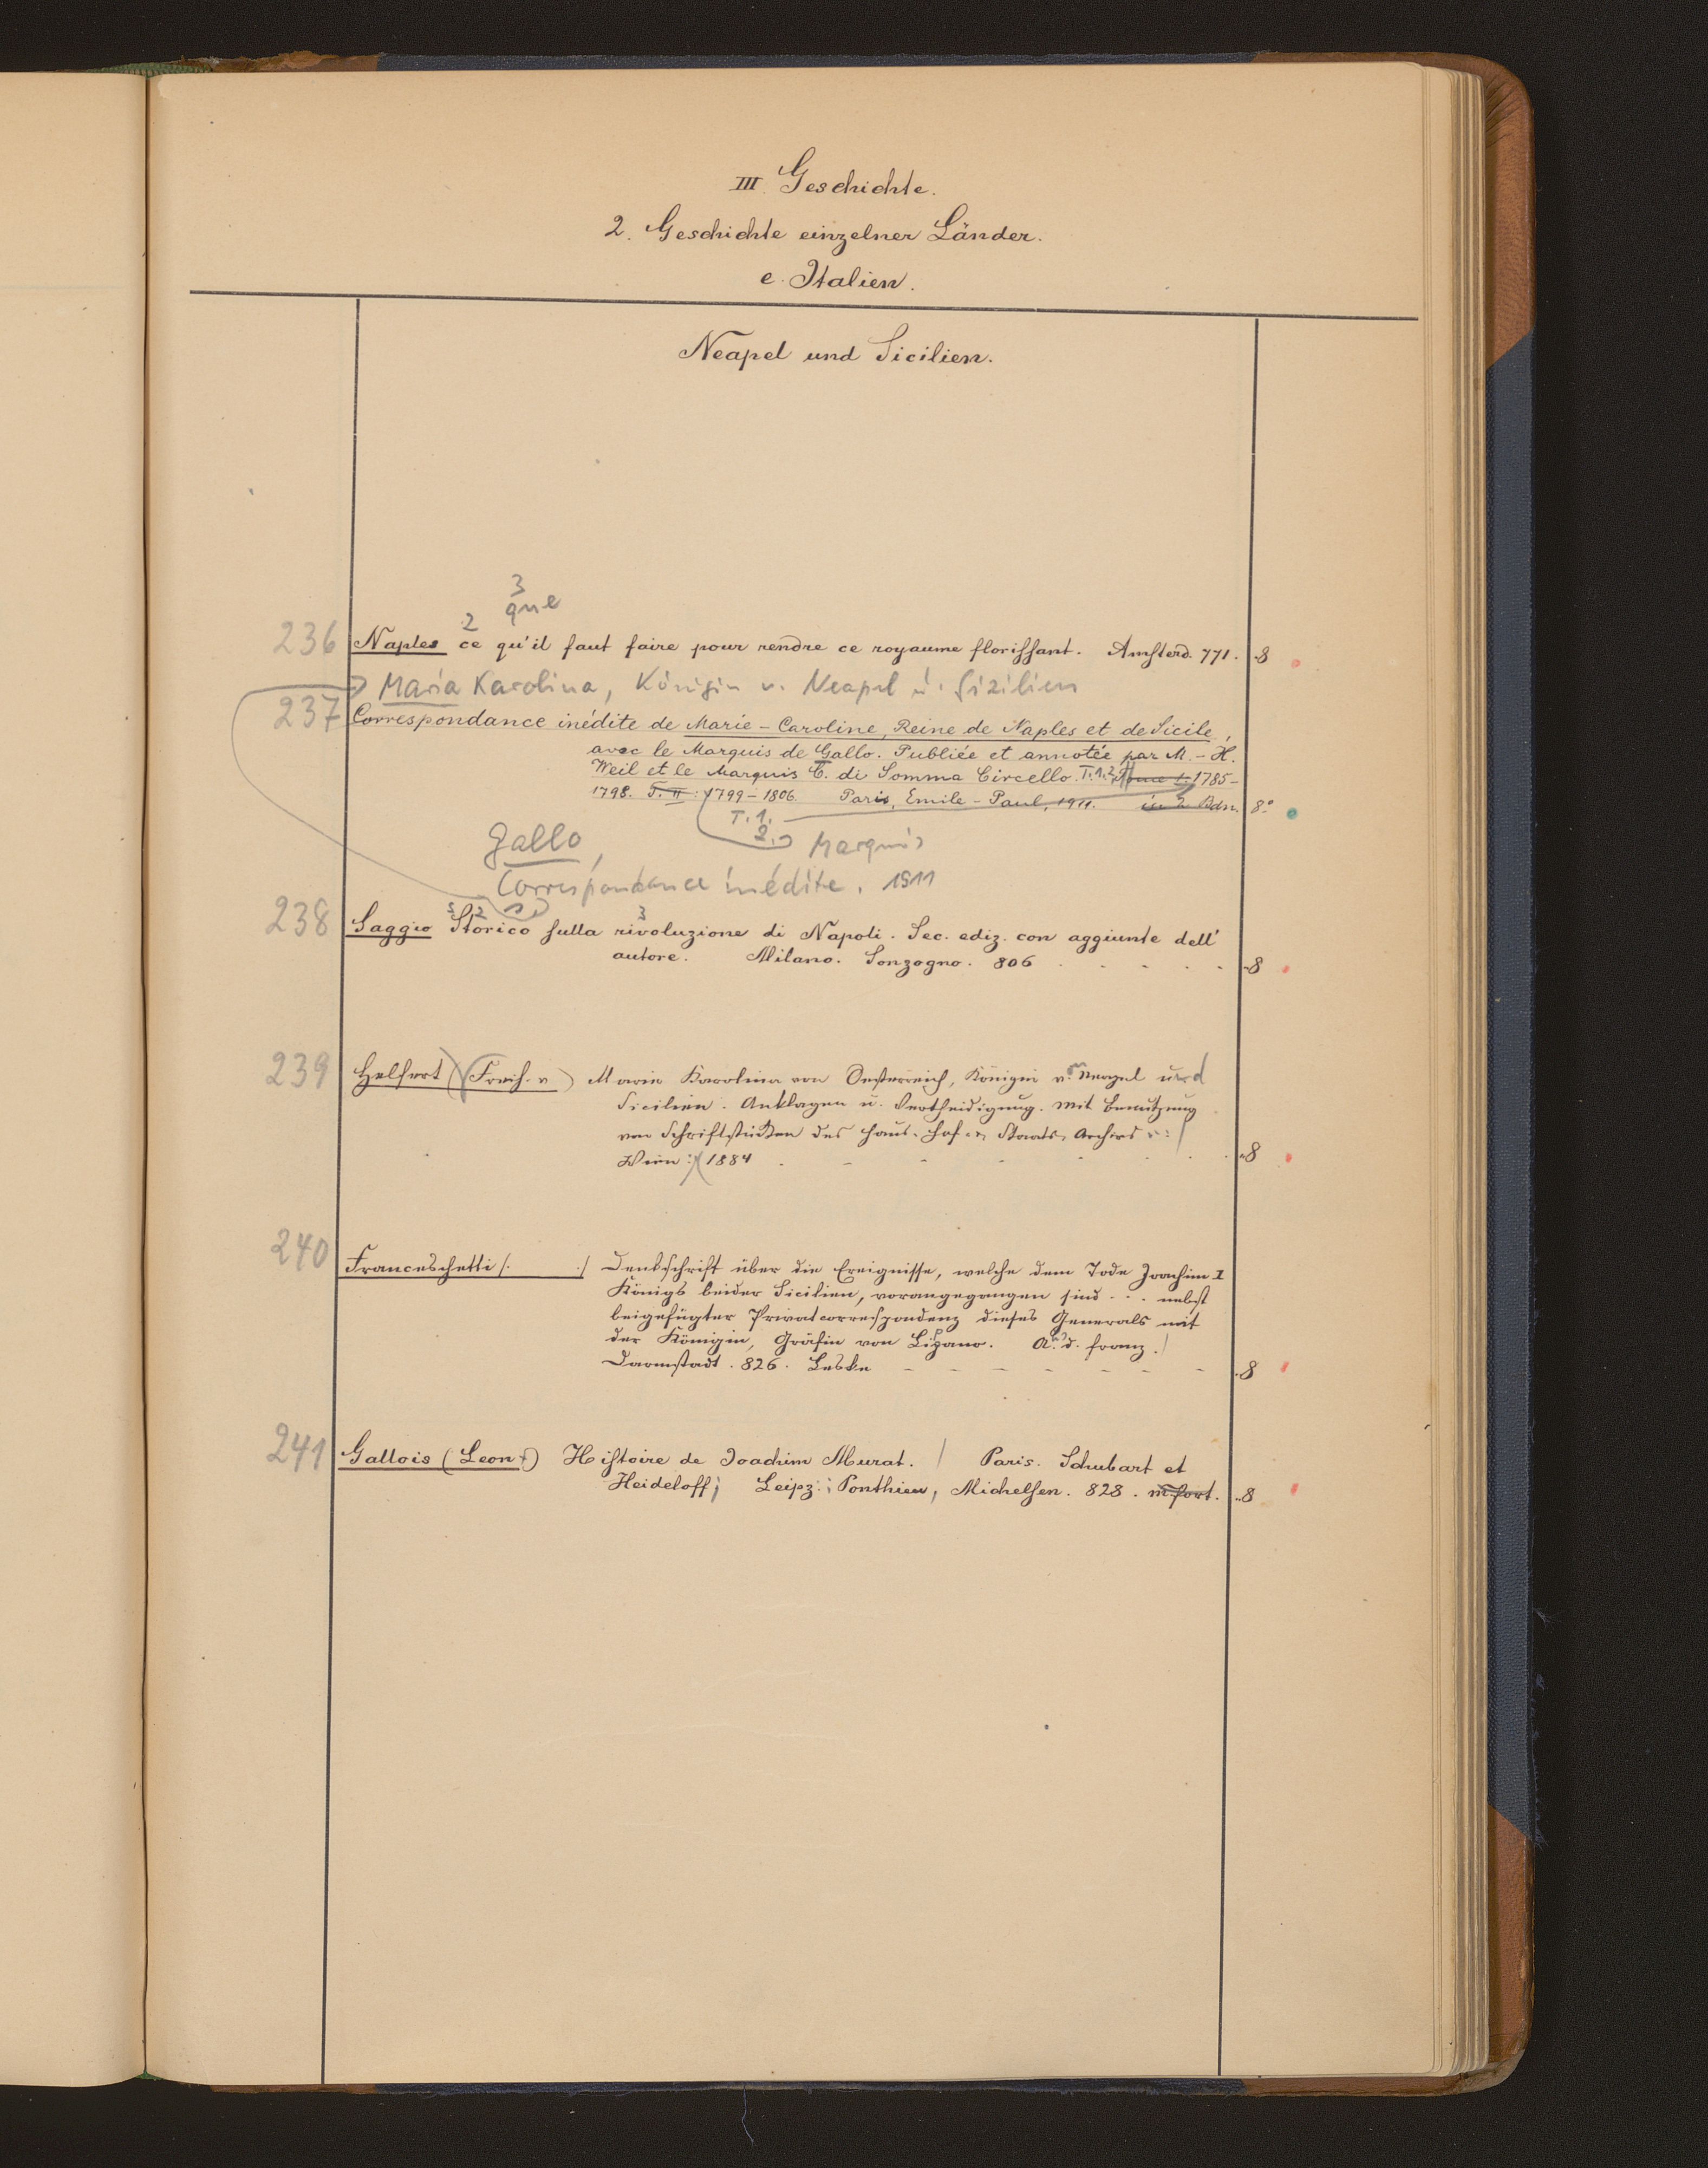 III Geschichte.
2. Geschichte einzelner Länder.
e. Italien.
Neapel und Sicilien.
3
que
2
236 Naples ce qu'il faut faire pour rendre ce royaume florissant. Amsterd. 771. 8
Maria Karolina, Königin v. Neapel u. Sizilien
237 Correspondance inédite de Marie-Caroline, Reine de Naples et de Sicile,
avec le Marquis de Gallo. Publiée et annotée par M.-H.
Weil et le Marquis C. di Somma Circello. T.1.2. Tome I. 1785-
1798. T. II: 1799-1806. Paris, Emile-Paul, 1911. in 2 Bdn. 8°
T. 1.
2.
Gallo, Marquis
Correspondance inédite. 1911
2 3
238 Saggio Storico sulla rivoluzione di Napoli. Sec. ediz. con aggiunte dell'
autore. Milano. Sonzogno. 806 8
239 Helfert (Freih. v.) Maria Karolina von Oesterreich, Königin v. Neapel und
Sicilien. Anklagen u. Vertheidigung. Mit Benützung
von Schriftstücken des Haus- Hof- u. Staats-Archivs
Wien: 1884 8
240 Franceschetti /. ./ Denkschrift über die Ereignisse, welche dem Tode Joachim I
Königs beider Sicilien, vorangegangen sind . . . nebst
beigefügter Privatcorrespondenz dieses Generals mit
der Königin, Gräfin von Lipano. A. d. franz.
Darmstadt. 826. Leske 8
241 Gallois (Leon.) Histoire de Joachim Murat. Paris. Schubart et
Heideloff; Leipz.; Ponthieu, Michelsen. 828. m. port. 8